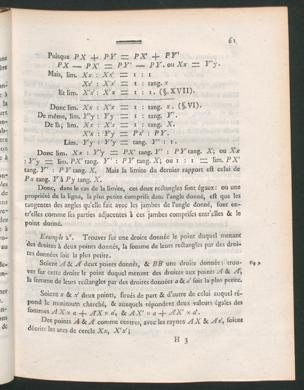 61
Puisque PX + PY = PX' + PY'
PX — PX' = PY' — PY. ou Xx = Yy.
Mais, lim. Xx : X'x = 1 : 1
X'x : X'x' = 1 : tang. x
Et lim. X'x' : X'x = 1 : 1. (§. XVII).
Donc lim. Xx : X'x' = 1 : tang. x. (§. VI).
De même, lim. Y'y : Yy = 1 : tang. Y'.
De là; lim. Xx : X'x' = 1 : tang. X.
Xx : Yy = Px' : PY.
Lim. Y'y : Yy = tang. Y' : 1.
Donc lim. Xx : Y'y = PX' tang. Y' : PY tang. X; ou Xx
: Y'y = lim. PX' tang. Y' : PY tang. X; ou 1 : 1 = lim. PX'
tang. Y' : PY tang. X. Mais la limite du dernier rapport est celui de
Px tang. Y à Py tang. X.
Donc, dans le cas de la limite, ces deux rectangles sont égaux: ou une
propriété de la ligne, la plus petite comprise dans l'angle donné, est que les
tangentes des angles qu'elle fait avec les jambes de l'angle donné, sont en-
tr'elles comme les parties adjacentes à ces jambes comprises entr'elles & le
point donné.
Exemple 2ᵈ. Trouver sur une droite donnée le point duquel menant
des droites à deux points donnés, la somme de leurs rectangles par des droi-
tes données soit la plus petite.
Soient A & A' deux points donnés, & BB une droite donnée: trou-
ver sur cette droite le point duquel menant des droites aux points A & A',
la somme de leurs rectangles par des droites données a & a' soit la plus petite.
Fig 2
Soient x & x' deux points, situés de part & d'autre de celui auquel ré-
pond le minimum cherché, & auxquels répondent deux valeurs égales des
sommes AX × a + A'X × a', & AX' × a + A'X' × a'.
Des points A & A' comme centres, avec les rayons AX & A'x', soient
décrits les arcs de cercle Xx, X'x';
H 3